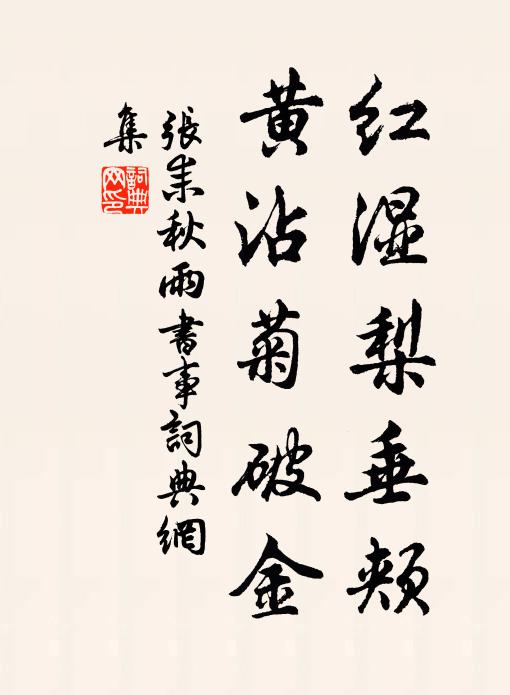 红湿梨垂颊
黄沾菊破金
張耒秋雨書事詞典網
集
詞典网印